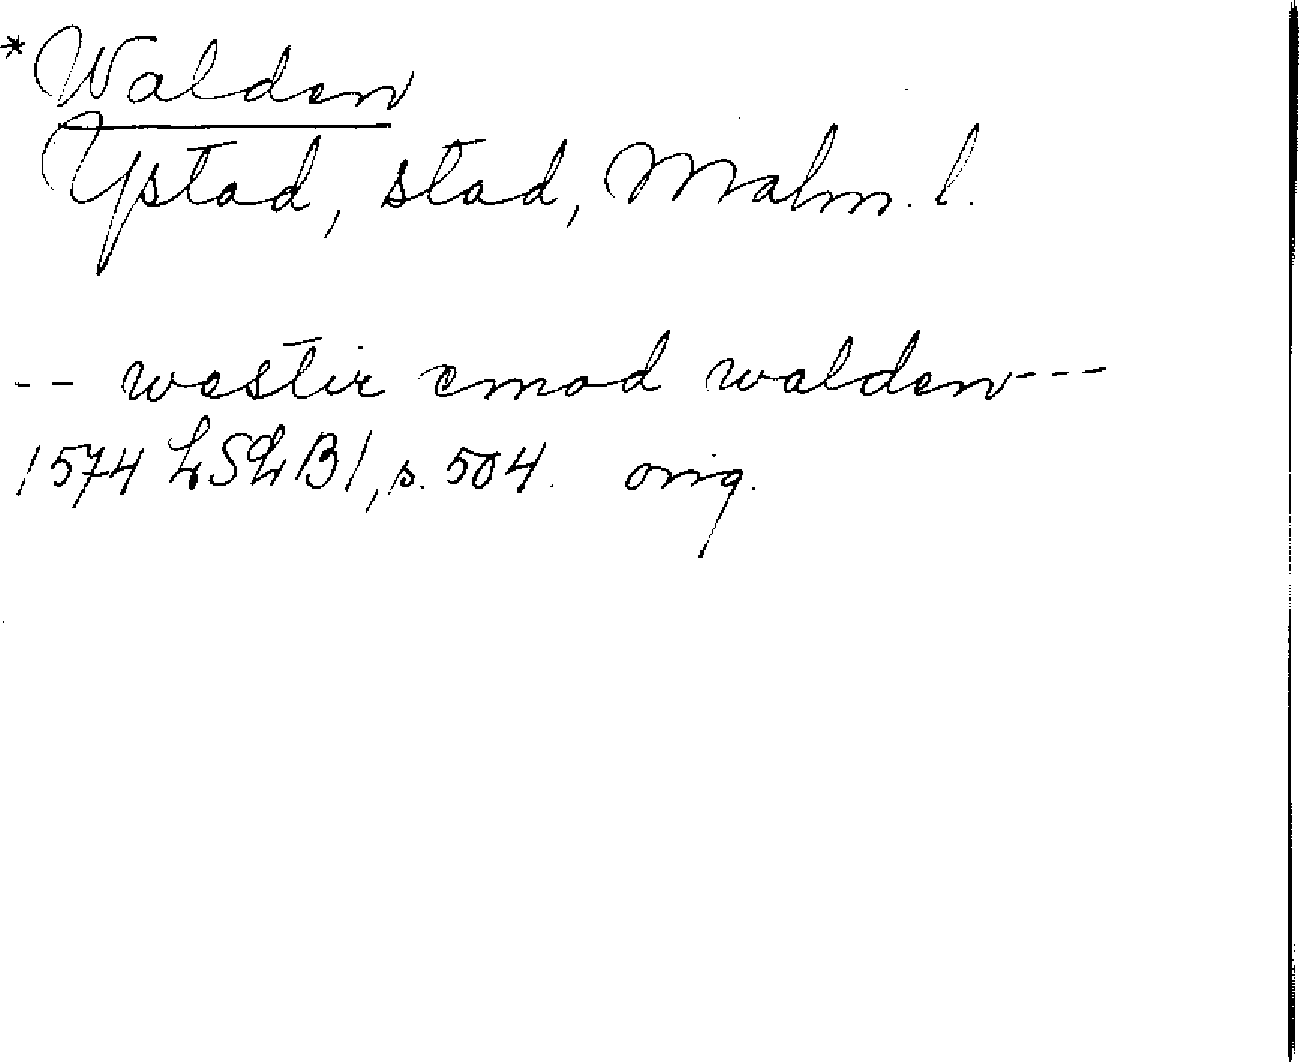 *Walden
Ystad, stad, Malm. l.
-- westir emod walden ---
1574 LSLB1, s. 504. orig.